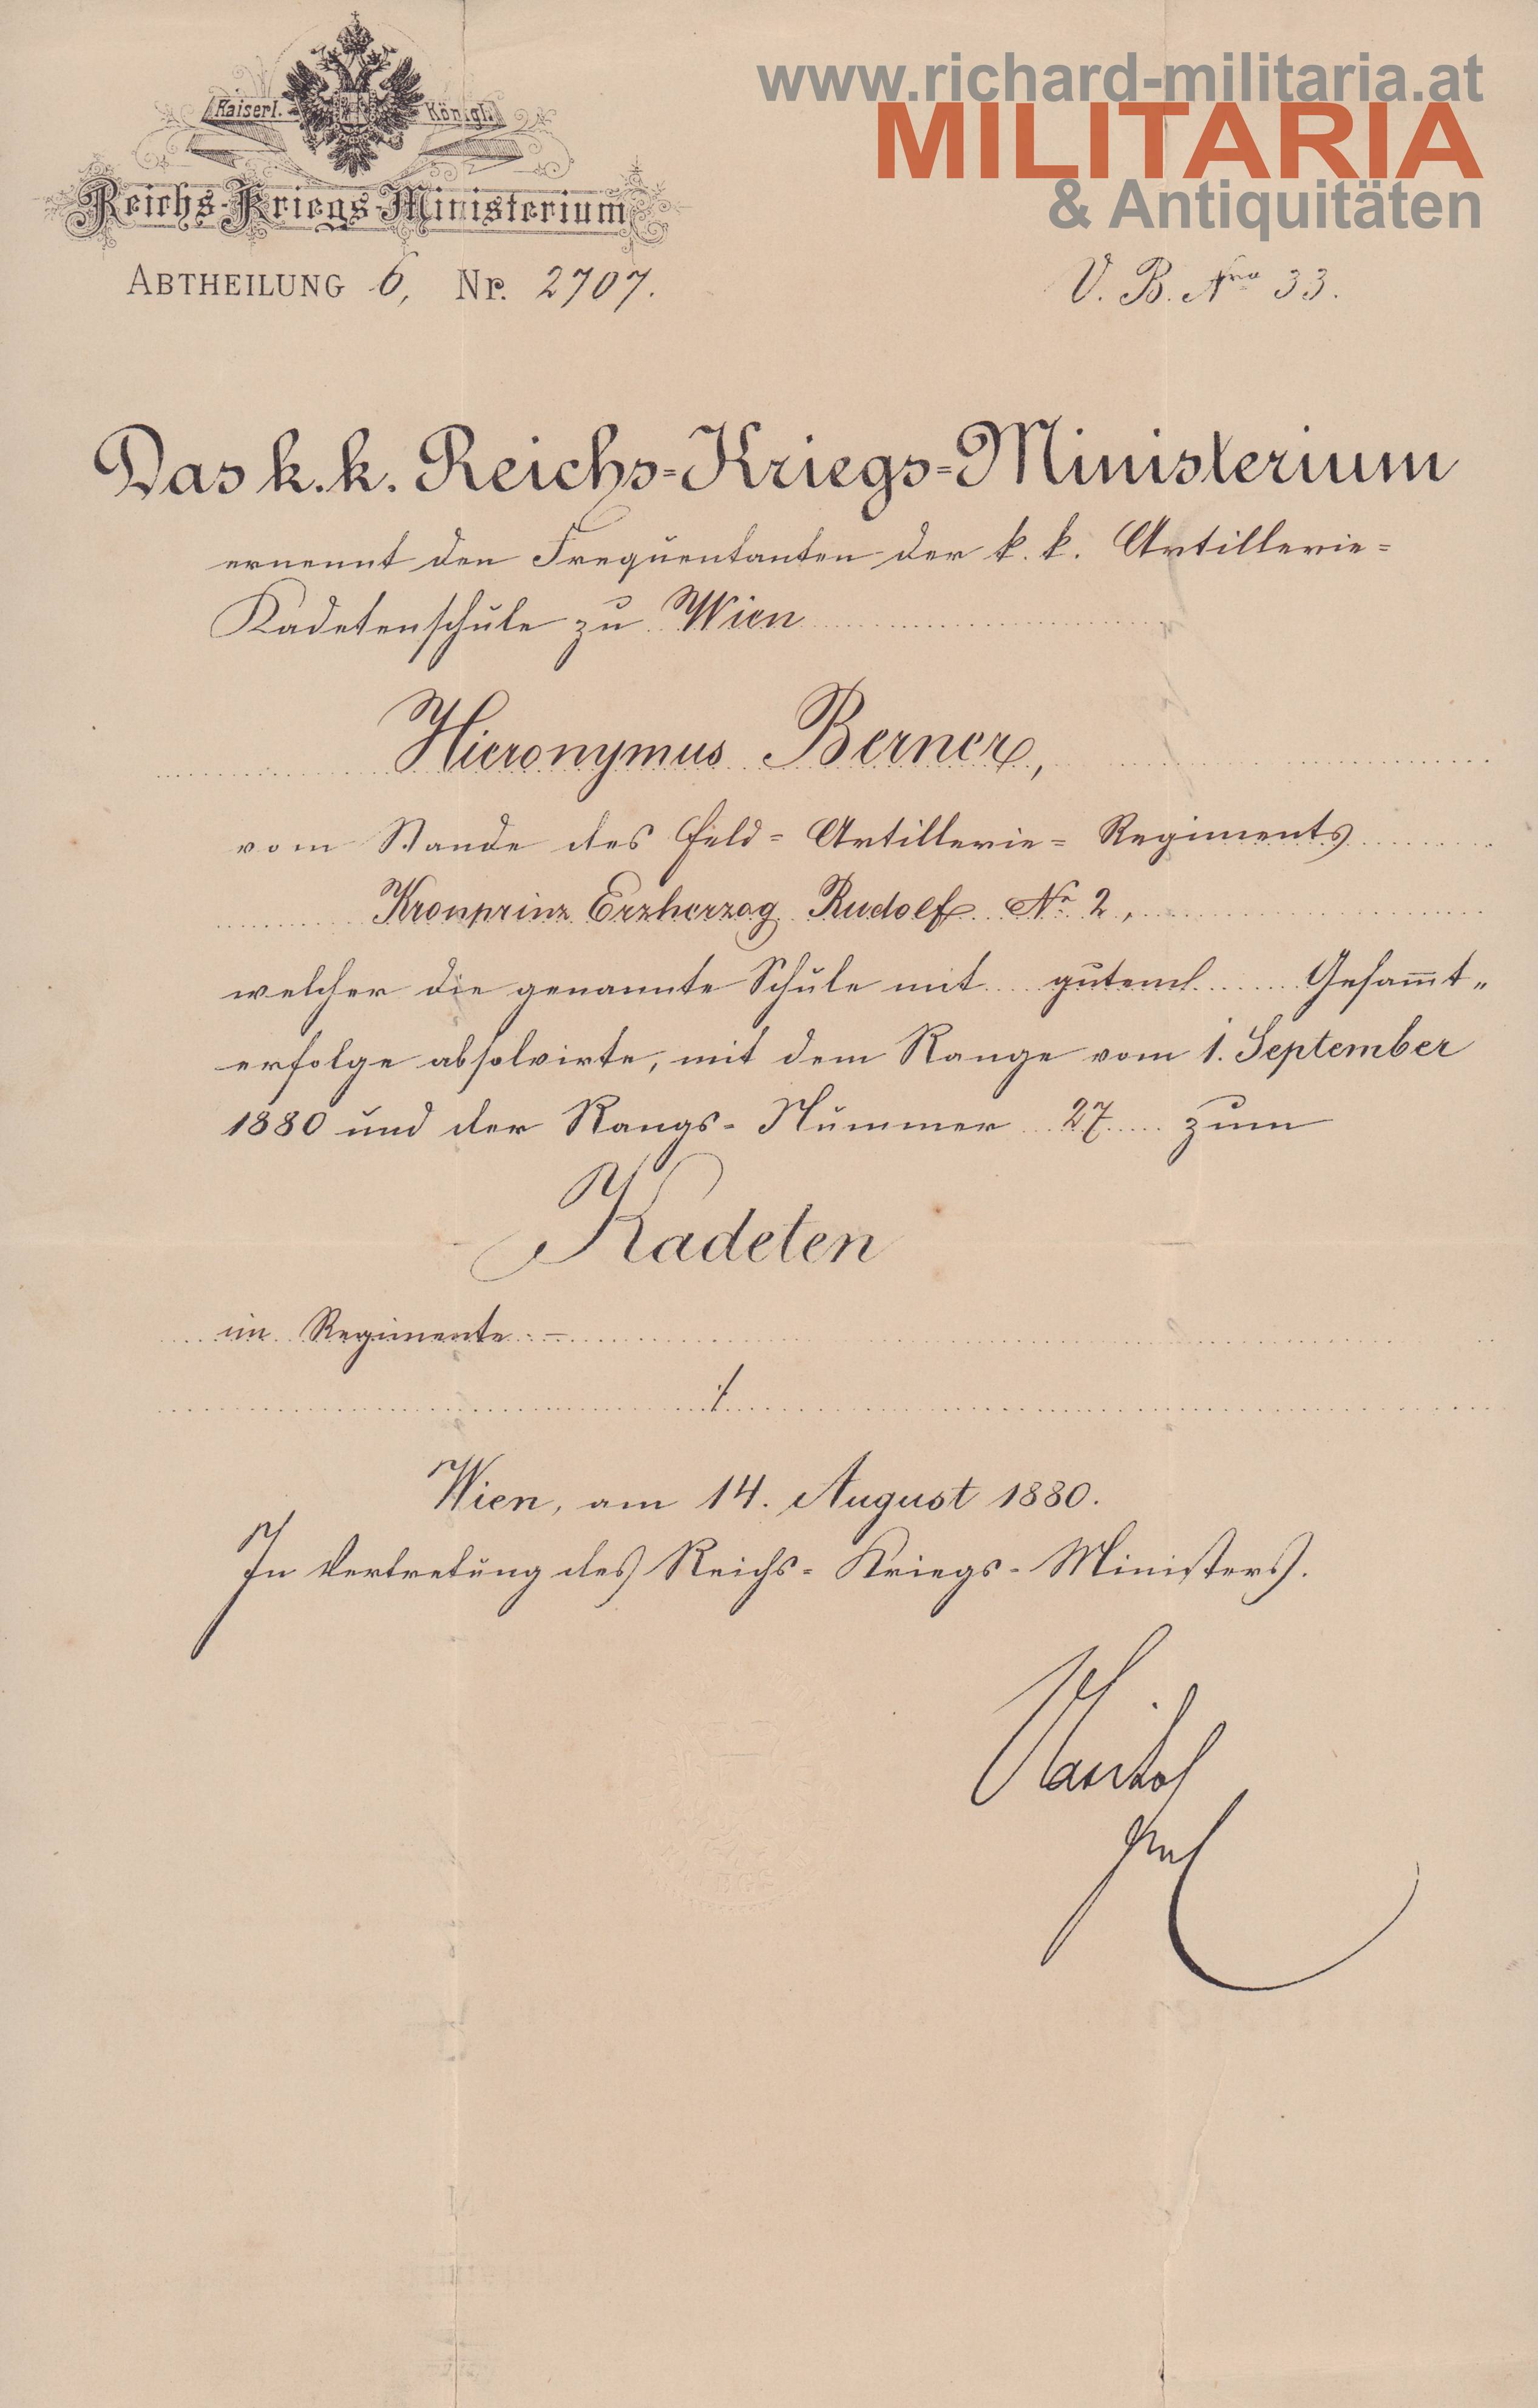 www.richard-militaria.at
MILITARIA
& Antiquitäten
Kaiserl. Königl.
Reichs-Kriegs-Ministerium
ABTHEILUNG 6, Nr. 2707.
V. B. Nro 33.
Das k. k. Reichs-Kriegs-Ministerium
ernennt den Frequentanten der k. k. Artillerie-
Kadetenschule zu Wien
Hieronymus Berner,
vom Stande des Feld-Artillerie-Regiments
Kronprinz Erzherzog Rudolf Nr. 2,
welcher die genannte Schule mit gutem Gesam̅t-
erfolge absolvirte, mit dem Range vom 1. September
1880 und der Rangs-Nummer 27 zum
Kadeten
im Regimente. —
Wien, am 14. August 1880.
In Vertretung des Reichs-Kriegs-Ministers.